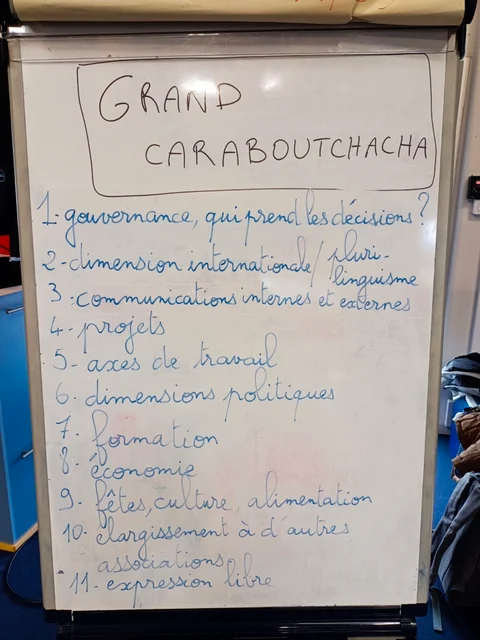 GRAND
CARABOUTCHACHA
1- gouvernance, qui prend les décisions ?
2- dimension internationale / pluri-
linguisme
3 - communications internes et externes
4- projets
5- axes de travail
6- dimensions politiques
7- formation
8- économie
9- fêtes, culture, alimentation
10- élargissement à d'autres
associations
11- expression libre